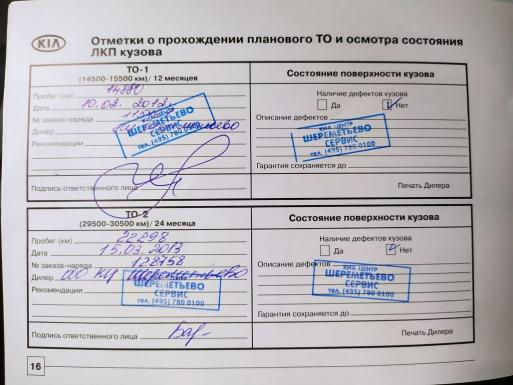 KIA Отметки о прохождении планового ТО и осмотра состояния
ЛКП кузова
ТО-1
(14500-15500 км)/ 12 месяцев
Пробег (км) 14880
Дата 10.02.2012г.
№ заказа-наряда
Дилер
Рекомендации
КИА ЦЕНТР
ШЕРЕМЕТЬЕВО
СЕРВИС
тел. (495) 780 0100
Подпись ответственного лица
Состояние поверхности кузова
Наличие дефектов кузова
Да Нет
Описание дефектов
КИА ЦЕНТР
ШЕРЕМЕТЬЕВО
СЕРВИС
тел. (495) 780 0100
Гарантия сохраняется до
Печать Дилера
ТО-2
(29500-30500 км)/ 24 месяца
Пробег (км) 22298
Дата 15.03.2013
№ заказа-наряда 128758
Дилер ООО КЦ Шереметьево
Рекомендации
КИА ЦЕНТР
ШЕРЕМЕТЬЕВО
СЕРВИС
тел. (495) 780 0100
Подпись ответственного лица
Состояние поверхности кузова
Наличие дефектов кузова
Да Нет
Описание дефектов
КИА ЦЕНТР
ШЕРЕМЕТЬЕВО
СЕРВИС
тел. (495) 780 0100
Гарантия сохраняется до
Печать Дилера
16